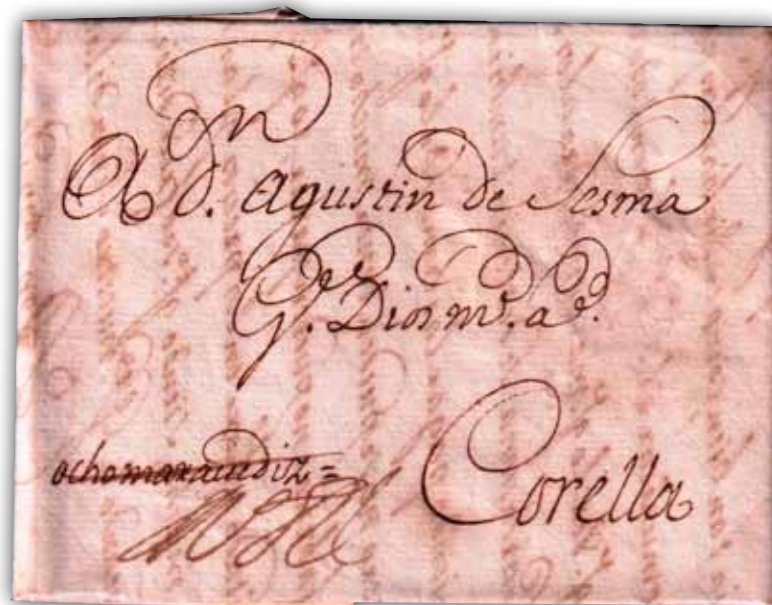 A Dn. Agustin de Sesma
Ge. Dios ms. as.
ocho maravediz =
Corella